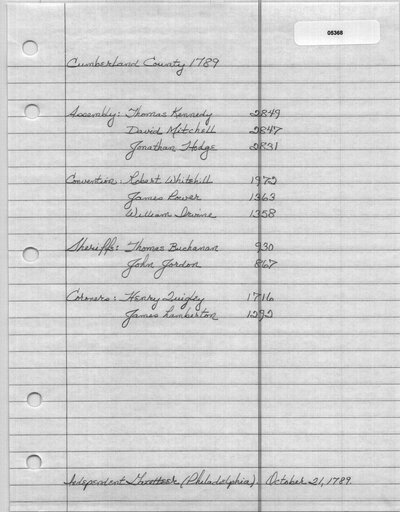 05368
Cumberland County 1789
Assembly: Thomas Kennedy 2849
David Mitchell 2847
Jonathan Hodge 2831
Convention: Robert Whitehill 1972
James Power 1363
William Irvine 1358
Sheriffs: Thomas Buchanan 930
John Jordon 867
Coroners: Henry Quigley 1716
James Lamberton 1292
Independent Gazetteer (Philadelphia). October 21, 1789.